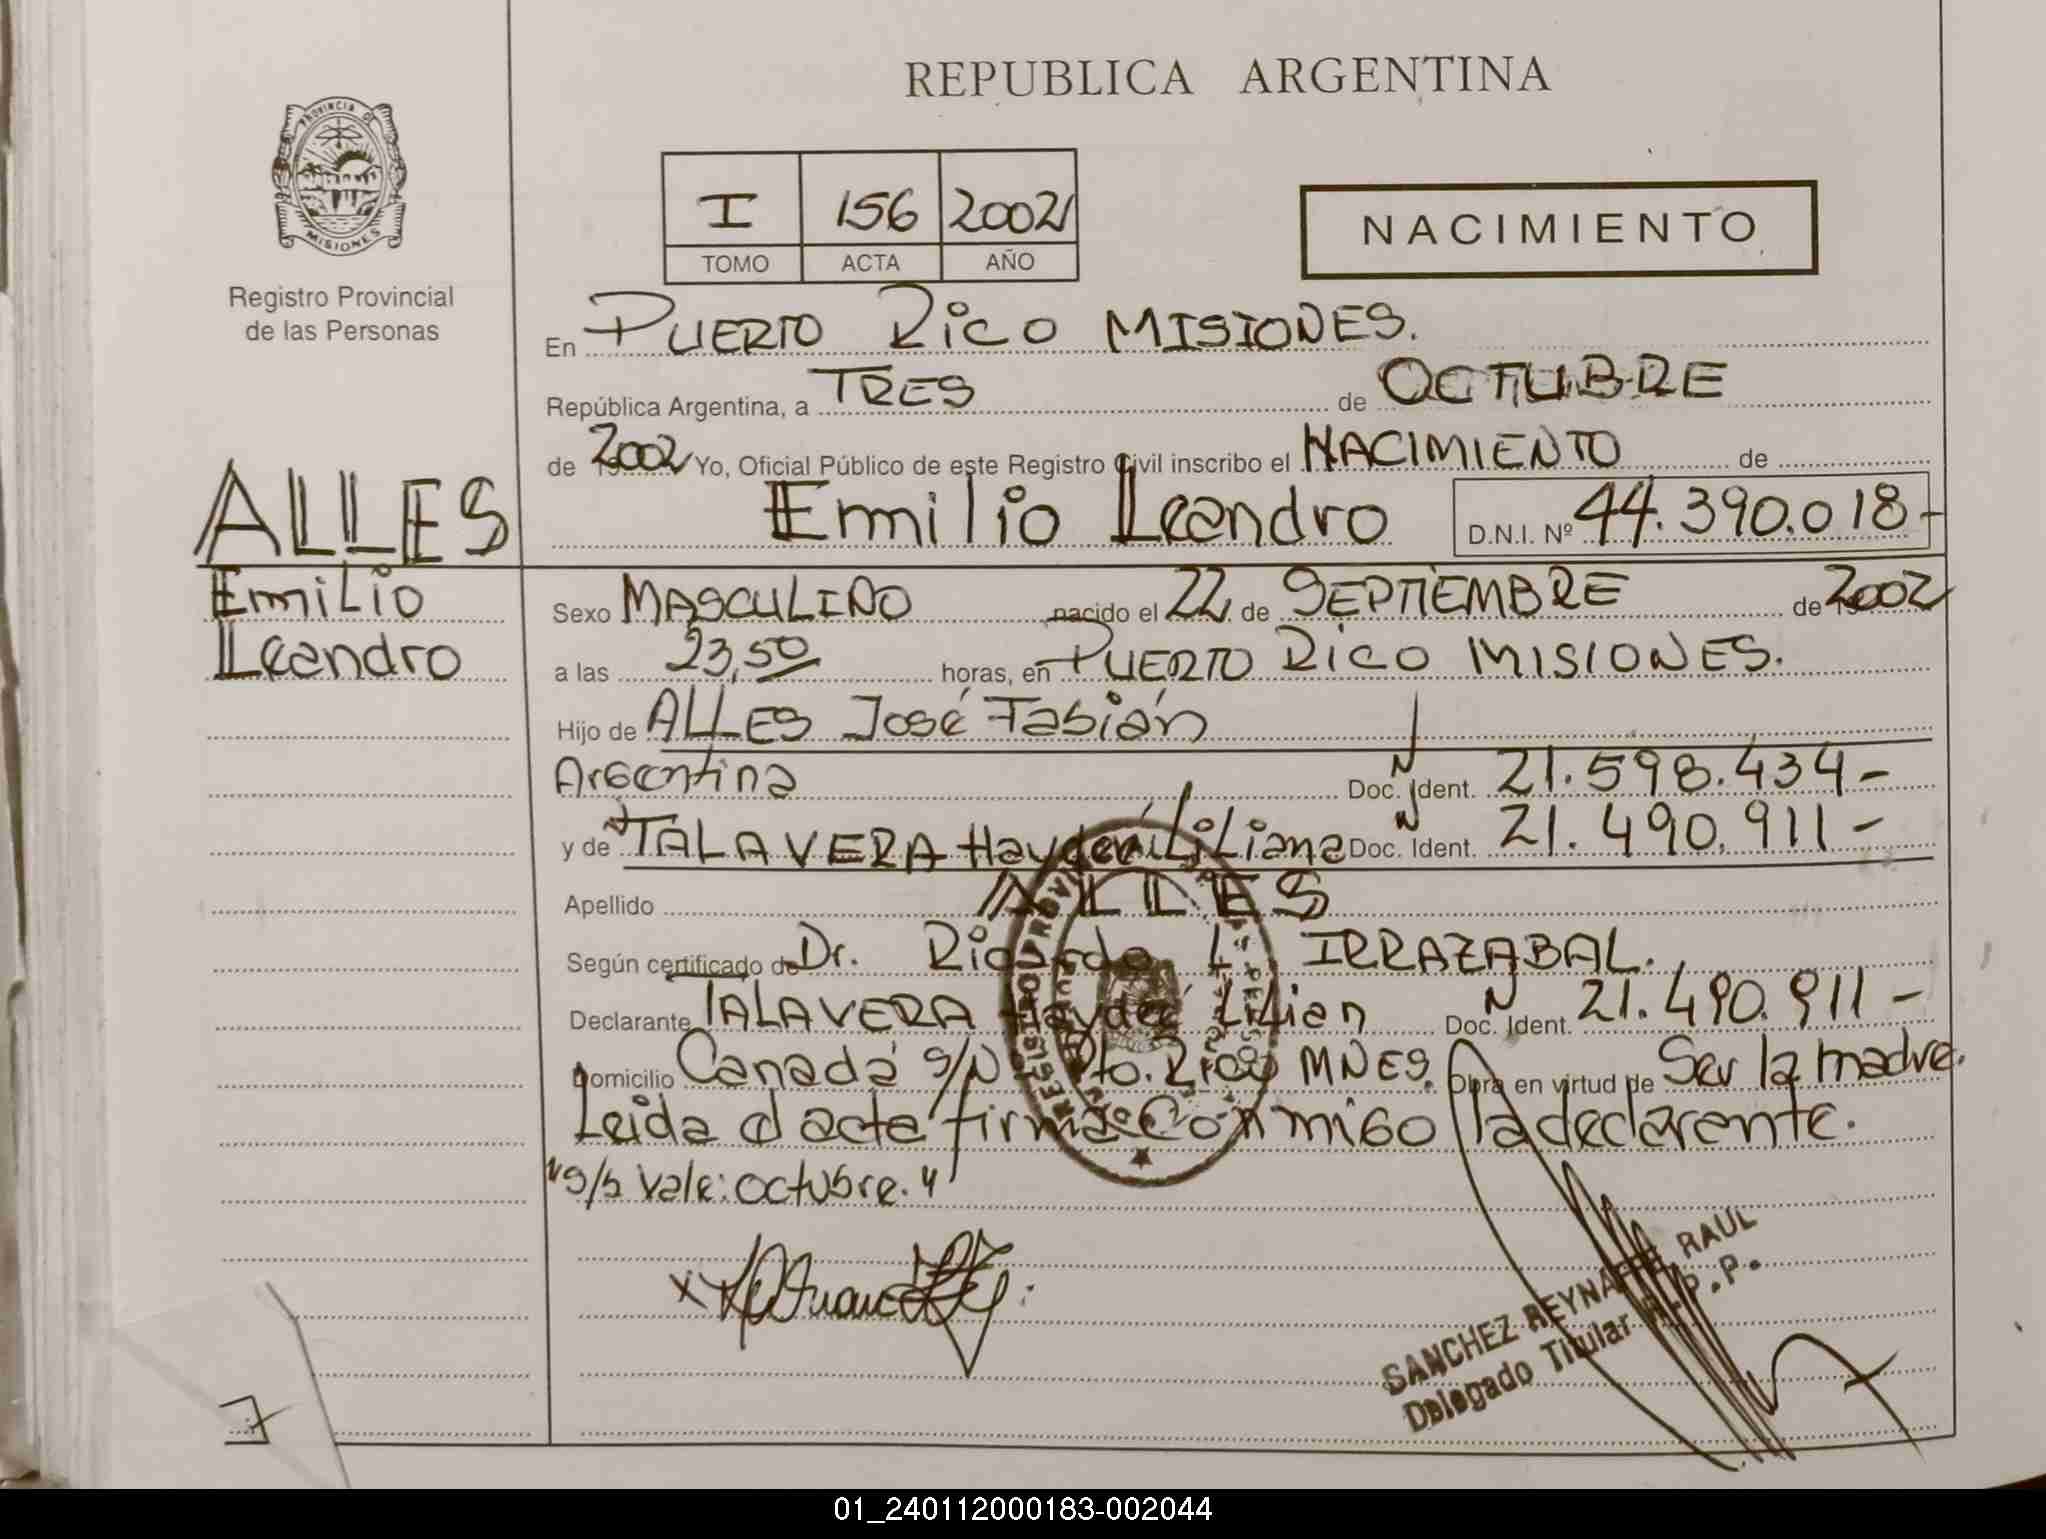 REPUBLICA ARGENTINA
PROVINCIA DE MISIONES
Registro Provincial
de las Personas
I 156 2002
TOMO ACTA AÑO
NACIMIENTO
En PUERTO RICO MISIONES.
República Argentina, a TRES de OCTUBRE
de 2002 Yo, Oficial Público de este Registro Civil inscribo el NACIMIENTO de
Emilio Leandro D.N.I. Nº 44.390.018-
ALLES
Emilio
Leandro
Sexo MASCULINO nacido el 22 de SEPTIEMBRE de 2002
a las 23,50 horas, en PUERTO RICO MISIONES.
Hijo de ALLES José Fabián
Argentina Doc. Ident. 21.598.434-
y de TALAVERA Haydeé Liliana Doc. Ident. 21.490.911-
Apellido ALLES
Según certificado de Dr. Ricardo L. IRRAZABAL.
Declarante TALAVERA Haydeé Lilian Doc. Ident. 21.490.911-
Domicilio Canadá s/N Pto. Rico MNES. Obra en virtud de Ser la madre.
Leida el acta firma Conmigo la declarante.
"s/b Vale: octubre."
SANCHEZ RAUL
Delegado Titular R.P.P.
01_240112000183-002044